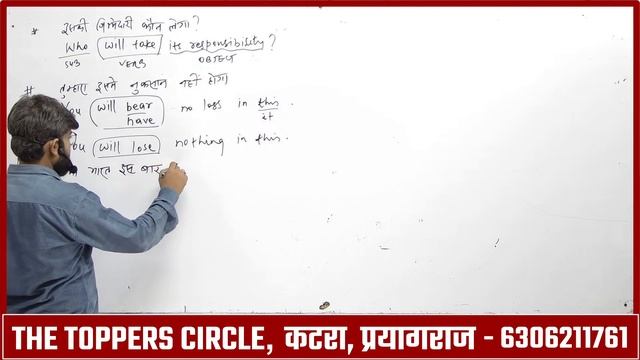 * इसकी जिम्मेदारी कौन लेगा?
Who will take its responsibility?
SUB VERB OBJECT
# तुम्हारा इसमें नुकसान नहीं होगा
You will bear no loss in this.
have it
You will lose nothing in this.
भारत इस बार
THE TOPPERS CIRCLE, कटरा, प्रयागराज - 6306211761